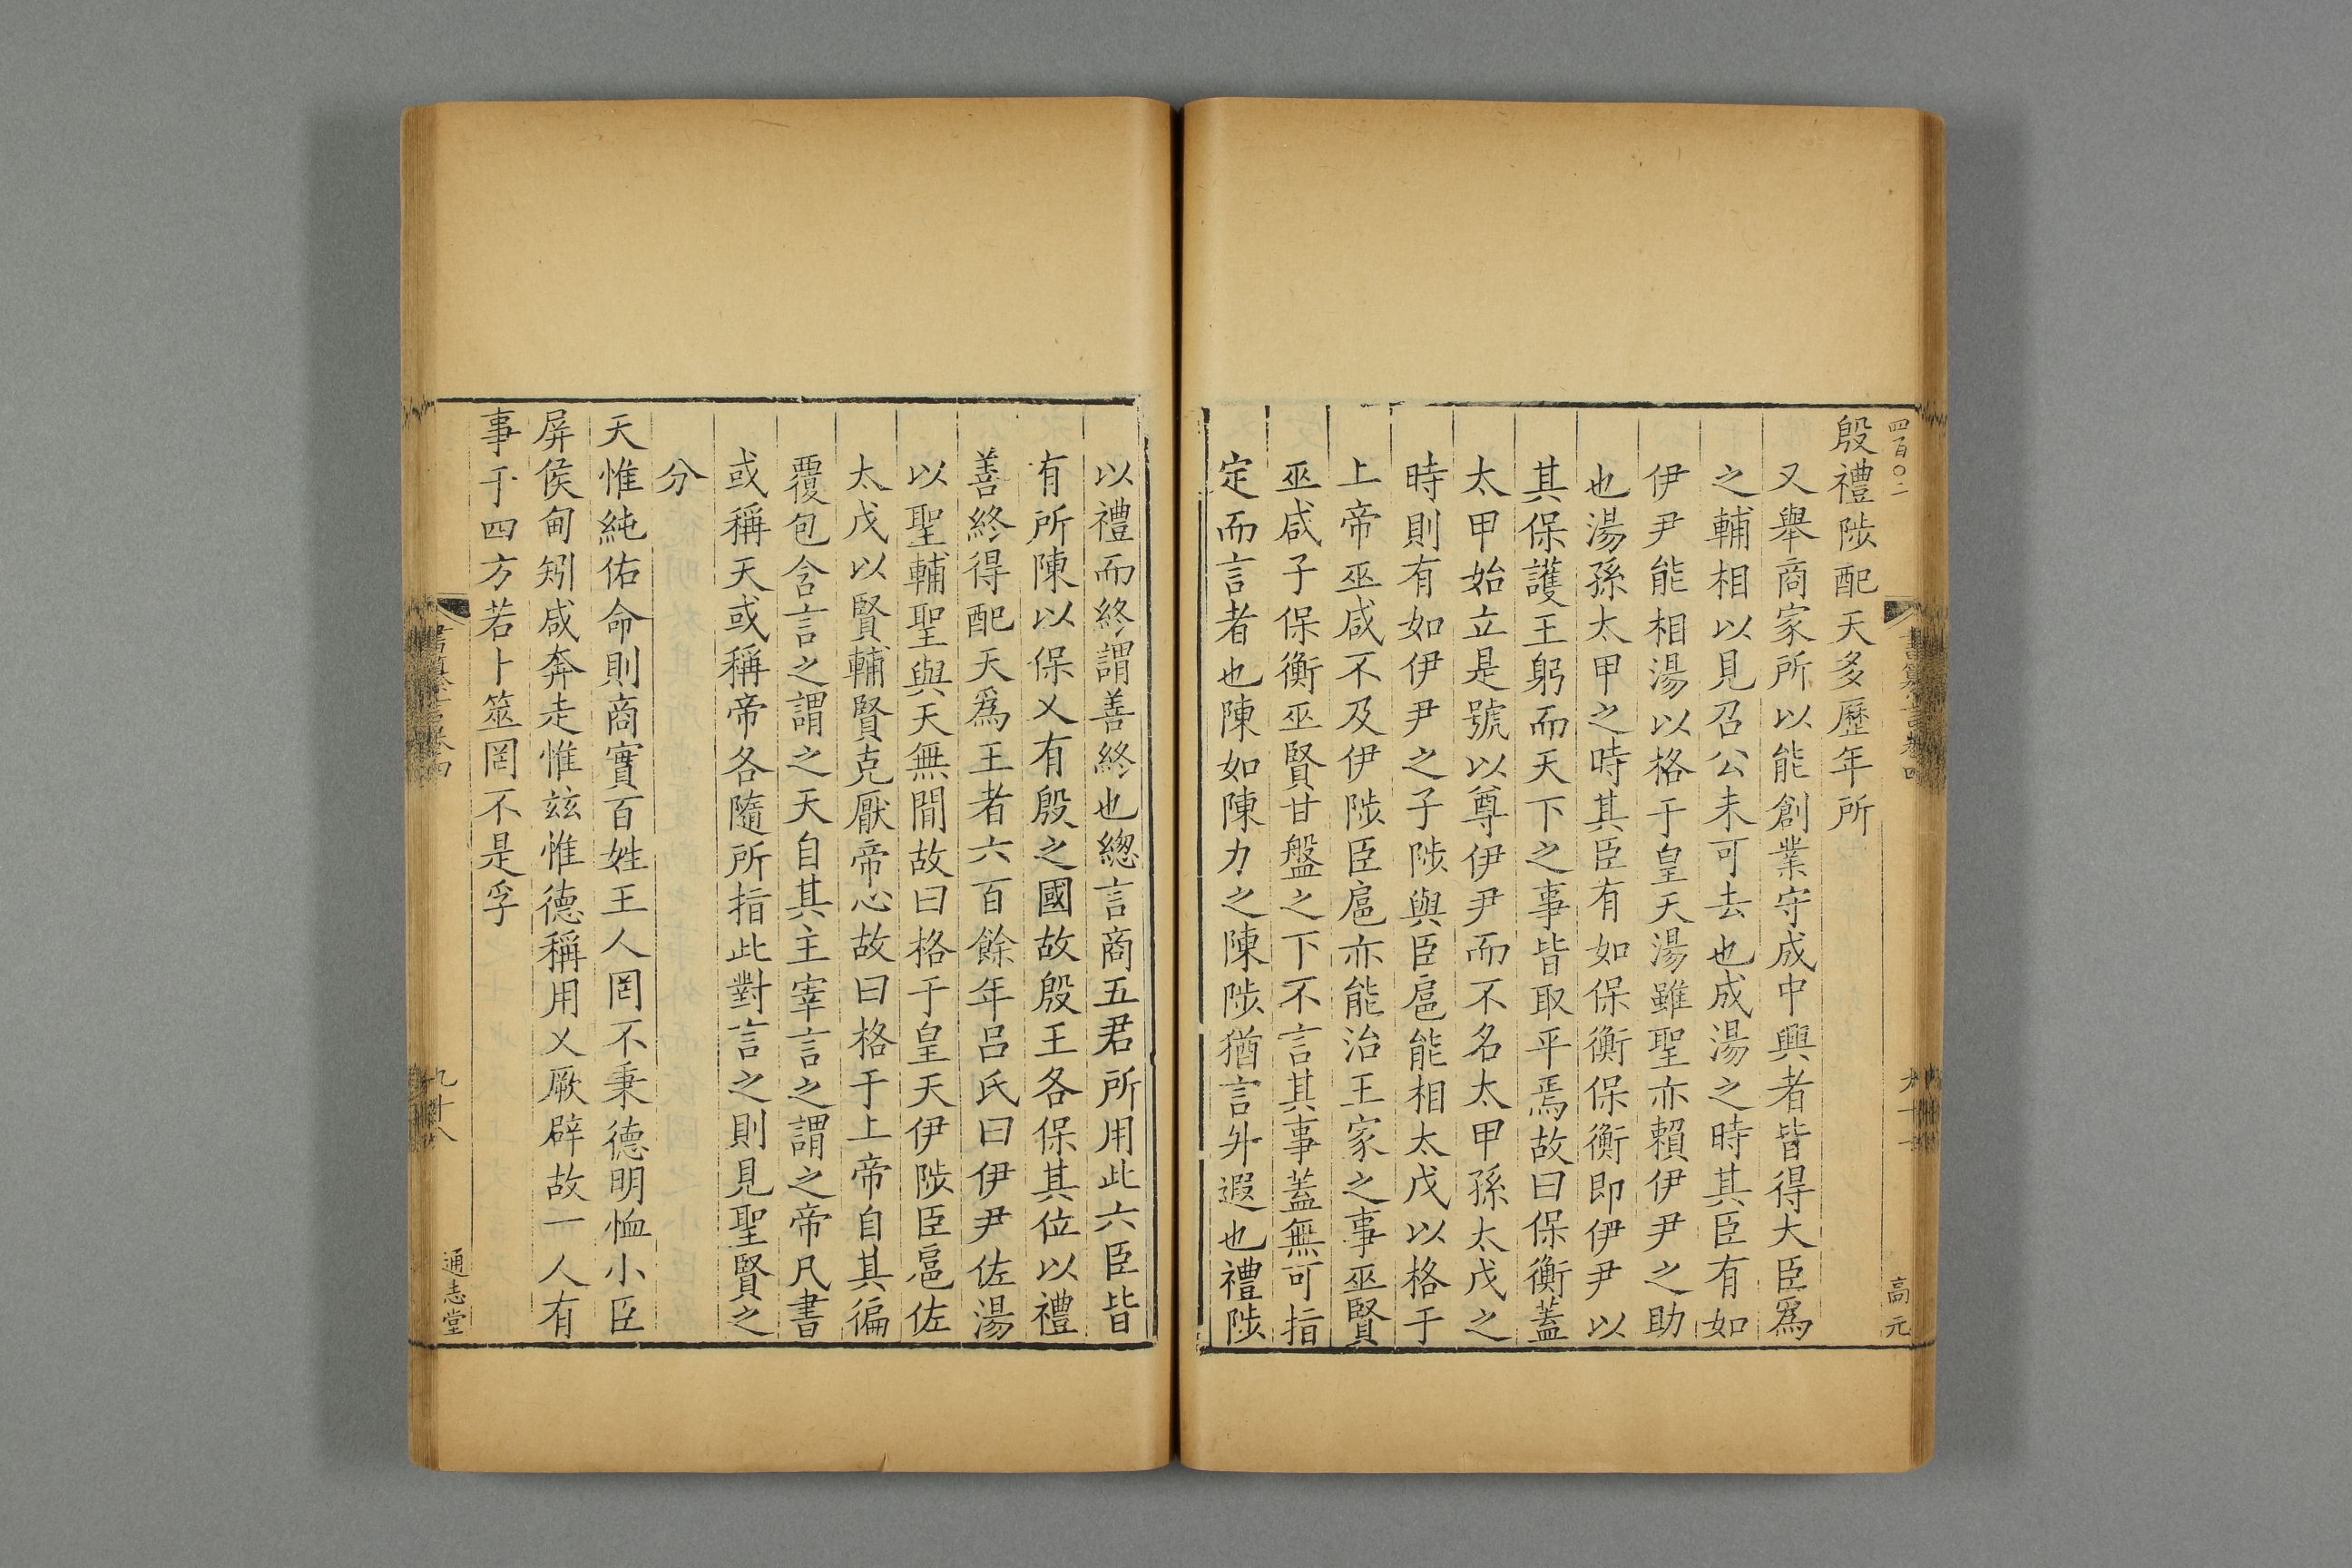 四百〇二
殷禮陟配天多歷年所
又舉商家所以能創業守成中興者皆得大臣爲
之輔相以見召公未可去也成湯之時其臣有如
伊尹能相湯以格于皇天湯雖聖亦賴伊尹之助
也湯孫太甲之時其臣有如保衡保衡即伊尹以
其保護王躬而天下之事皆取平焉故曰保衡蓋
太甲始立是號以尊伊尹而不名太甲孫太戊之
時則有如伊尹之子陟與臣扈能相太戊以格于
上帝巫咸不及伊陟臣扈亦能治王家之事巫賢
巫咸子保衡巫賢甘盤之下不言其事蓋無可指
定而言者也陳如陳力之陳陟猶言升遐也禮陟
高元
以禮而終謂善終也緫言商五君所用此六臣皆
有所陳以保乂有殷之國故殷王各保其位以禮
善終得配天爲王者六百餘年呂氏曰伊尹佐湯
以聖輔聖與天無間故曰格于皇天伊陟臣扈佐
太戊以賢輔賢克厭帝心故曰格于上帝自其徧
覆包含言之謂之天自其主宰言之謂之帝凡書
或稱天或稱帝各隨所指此對言之則見聖賢之
分
天惟純佑命則商實百姓王人罔不秉德明恤小臣
屏侯甸矧咸奔走惟玆惟德稱用乂厥辟故一人有
事于四方若卜筮罔不是孚
九十八
通志堂